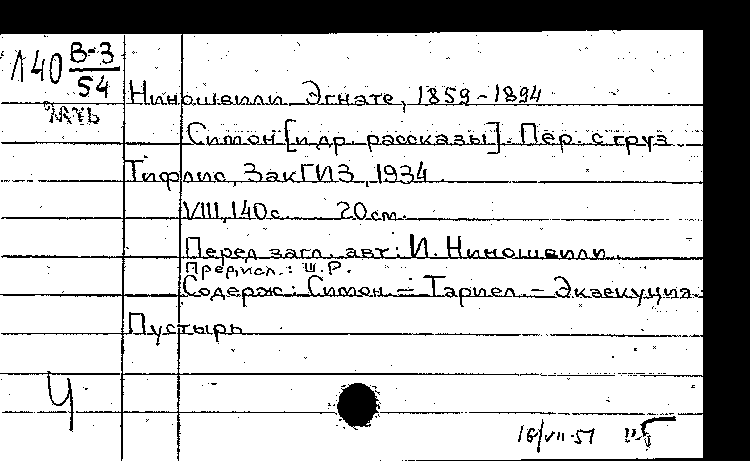 Л40 В-3
54
Ниношвили Эгнате, 1859-1894
Симон [и др. рассказы]. Пер. с груз
Тифлис, ЗакГИЗ, 1934
VIII, 140с. 20см.
Перед загл. авт: И. Ниношвили
Предисл.: Ш.Р.
Содерж: Симон. – Тариел – Экзекуция.
Пустырь
Ч
18/VII-51